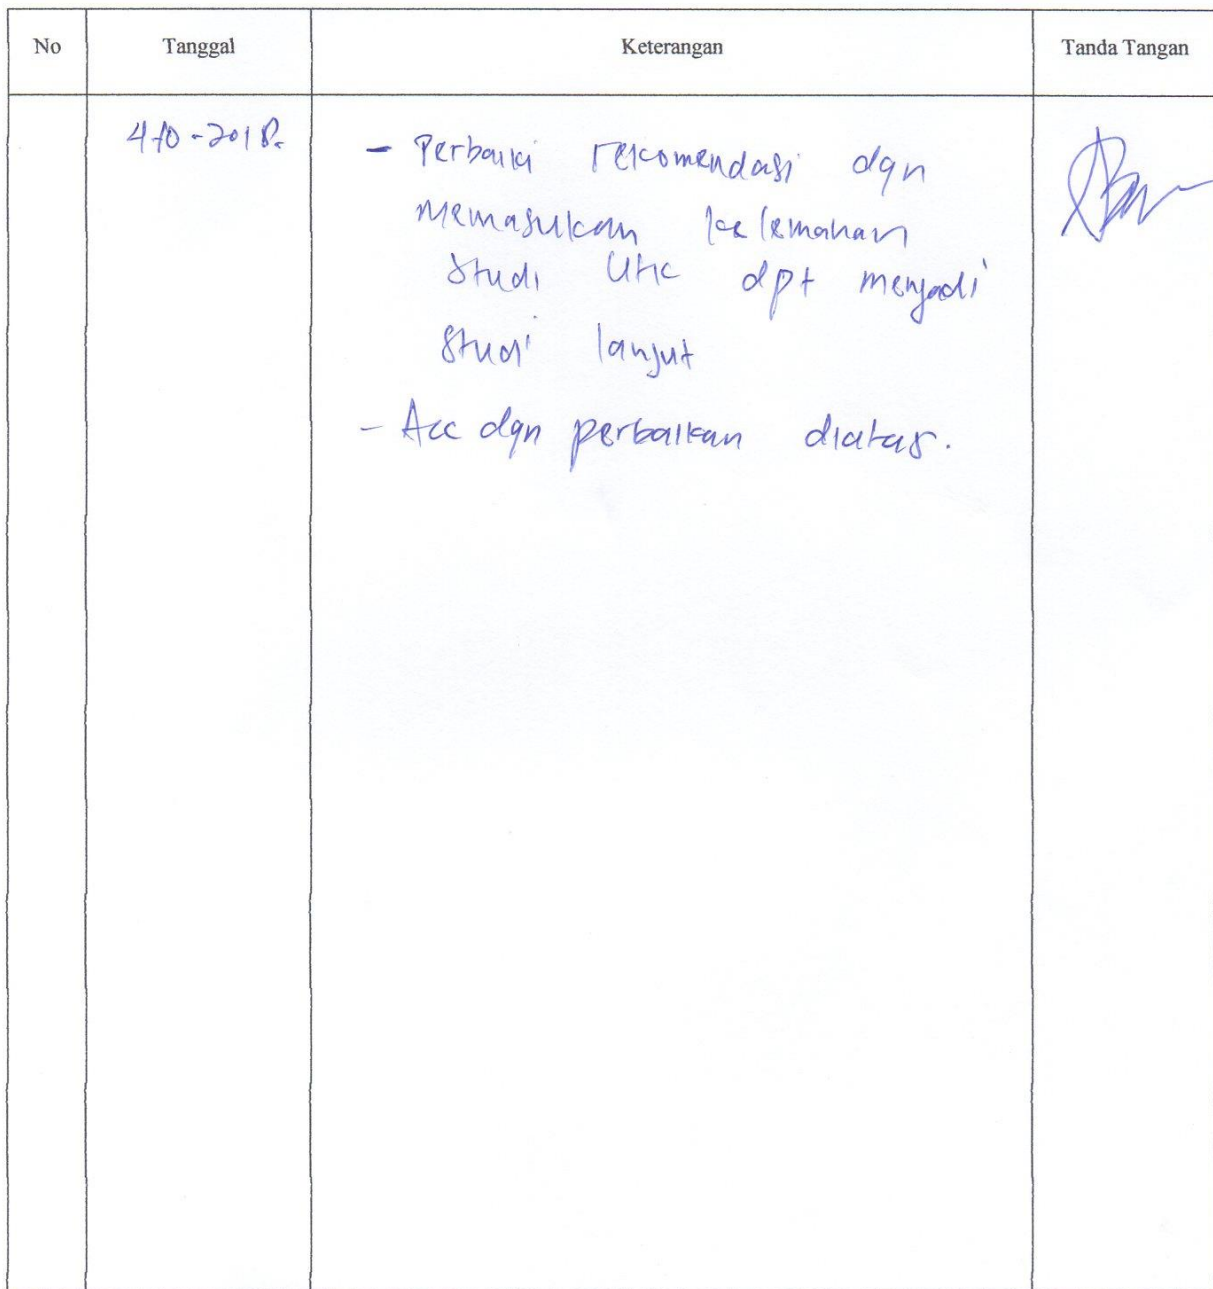 No Tanggal Keterangan Tanda Tangan
4-10-2018.
- Perbaiki rekomendasi dgn
memasukan kelemahan
studi utk dpt menjadi
studi lanjut
- Acc dgn perbaikan diatas.